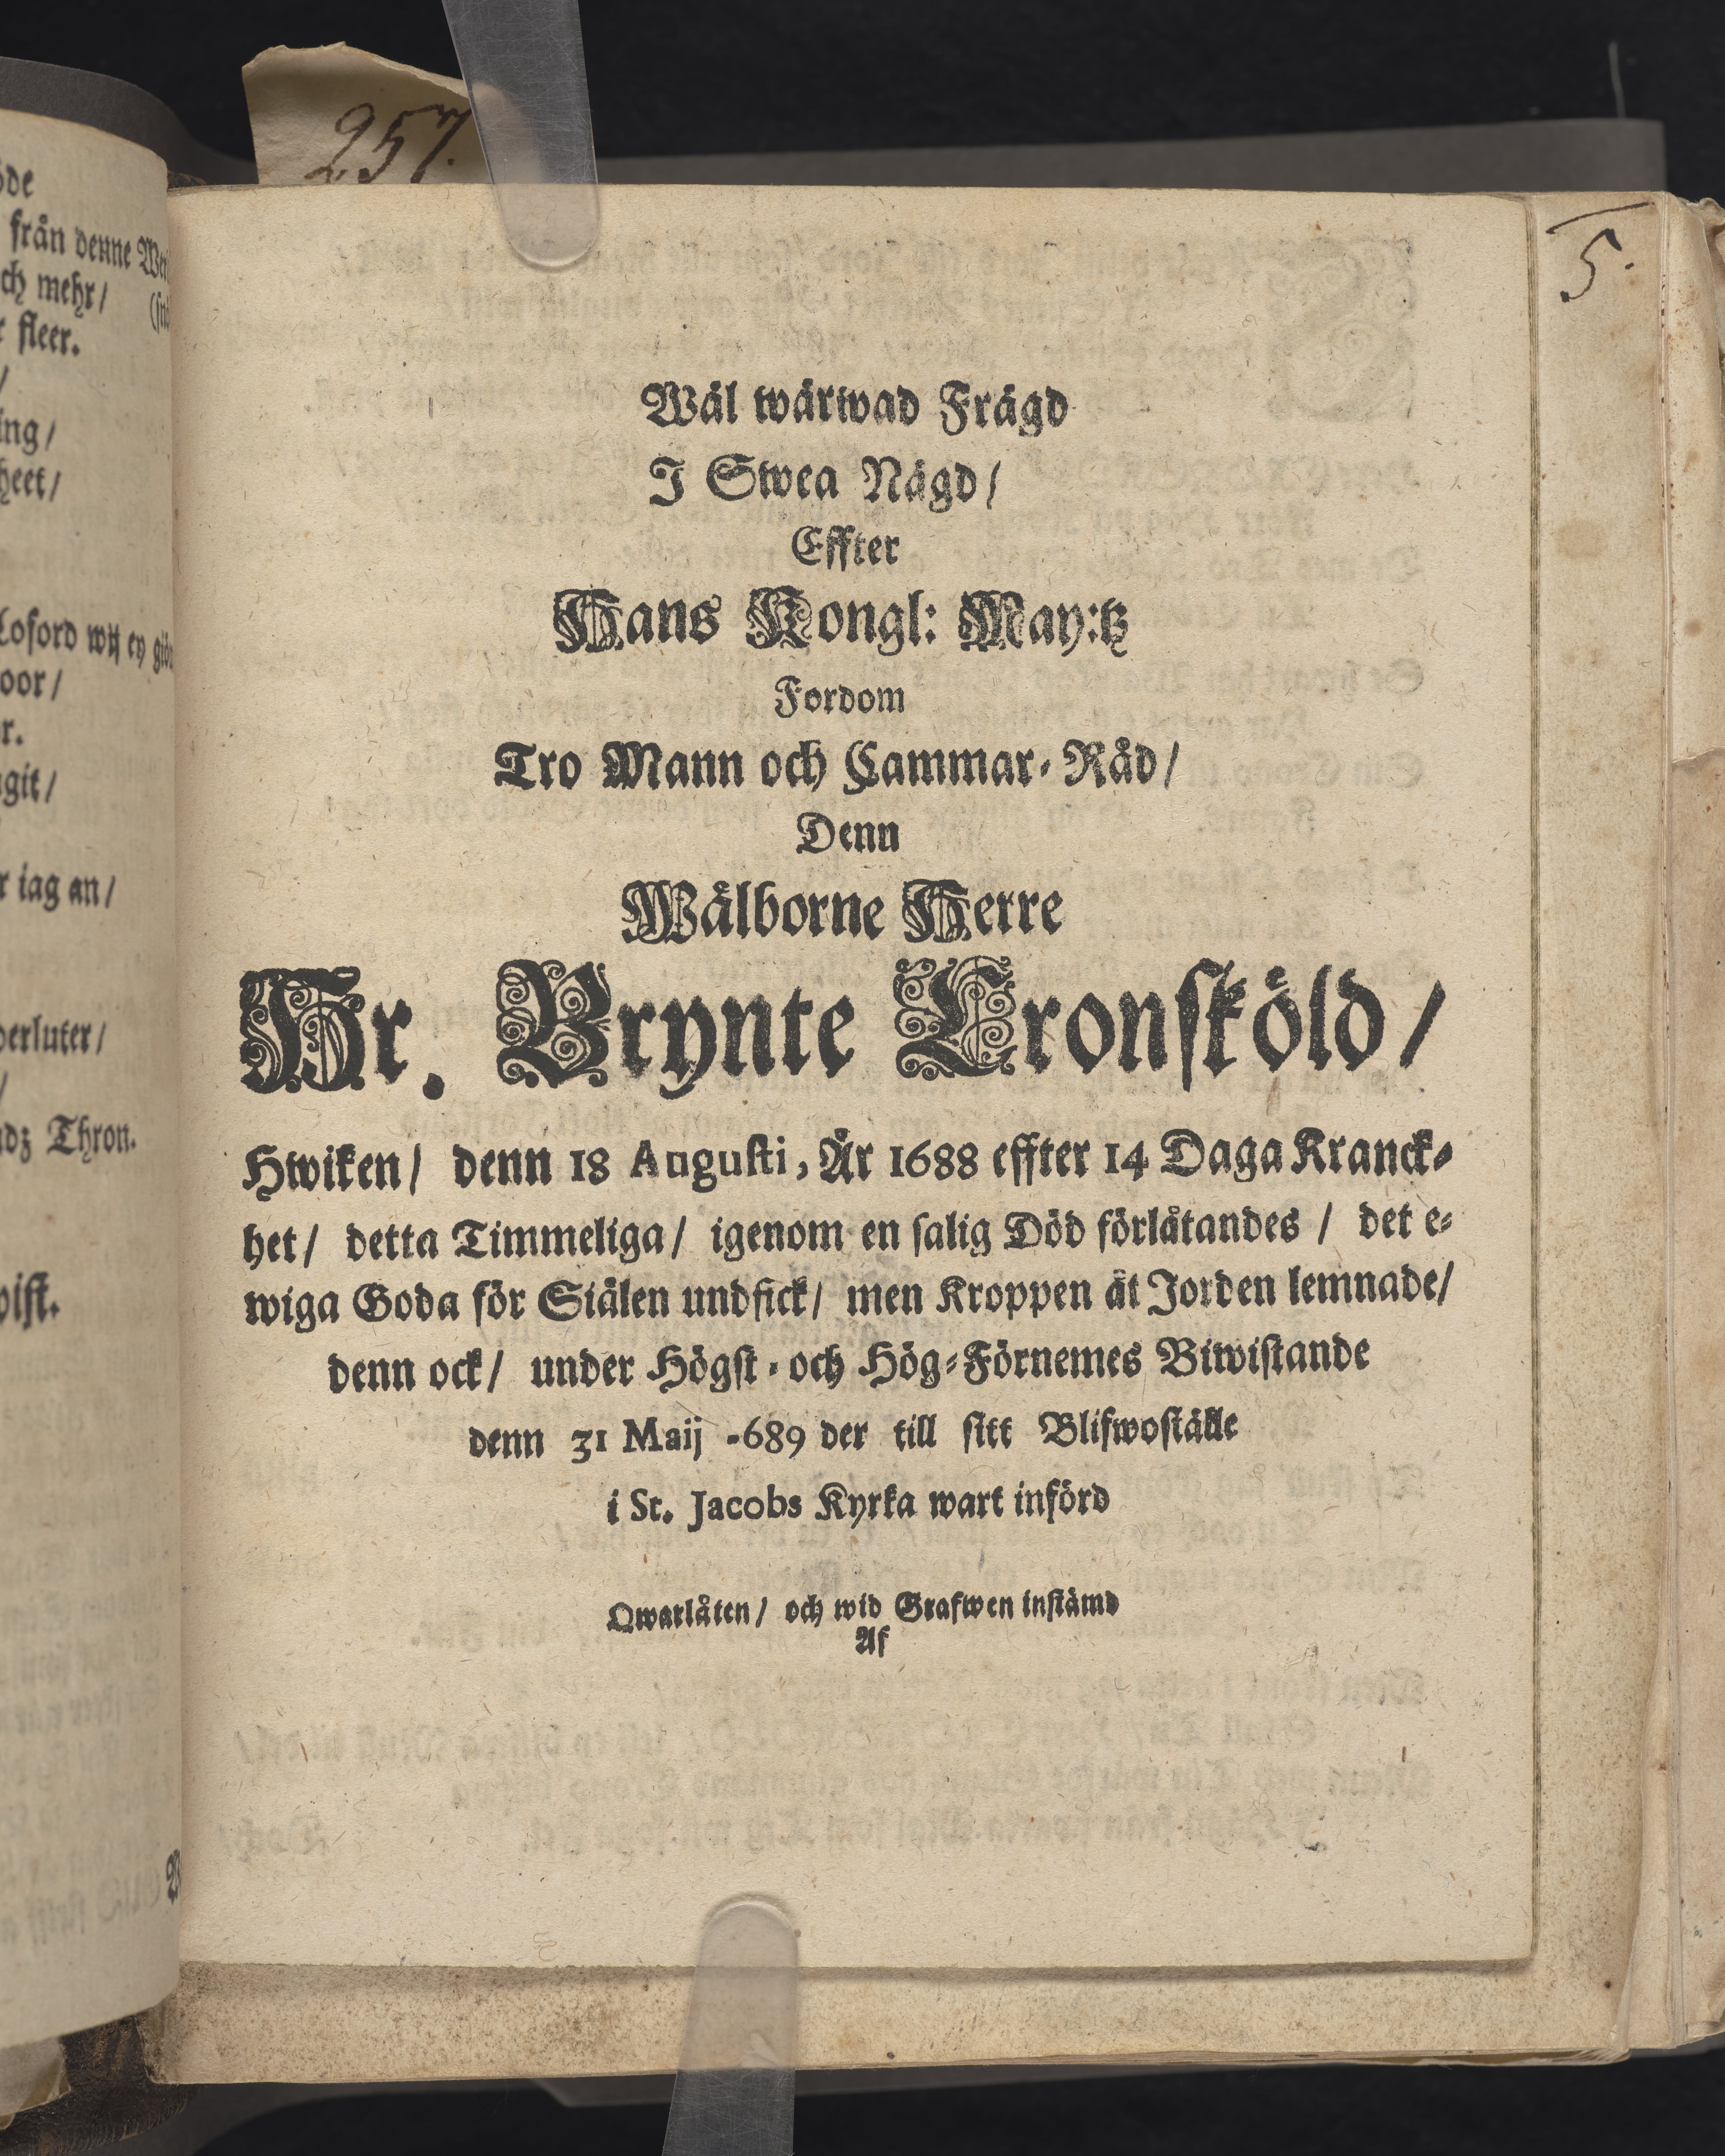 257.
5.
öde
från denne
ch mehr/
r fleer.
/
ing/
heet/
Loford wij ey
oor/
r.
git/
r iag an/
derluter/
/
dz Thron.
wist.
Wäl wärwad Frägd
I Swea Nägd/
Effter
Hans Kongl: May:tz
Fordom
Tro Mann och Cammar-Råd/
Denn
Wälborne Herre
Hr. Brynte Cronsköld/
Hwiken/ denn 18 Augusti, Är 1688 effter 14 Daga Kranck-
het/ detta Timmeliga/ igenom en salig Död förlåtandes / det e-
wiga Goda för Siälen undfick/ men Kroppen ät Jorden lemnade/
denn ock/ under Högst-och Hög-Förnemes Biwistande
denn 31 Maij -689 der till sitt Blifwoställe
i St. Jacobs Kyrka wart införd
Qwarlåten/ och wid Grafwen instämd
Af